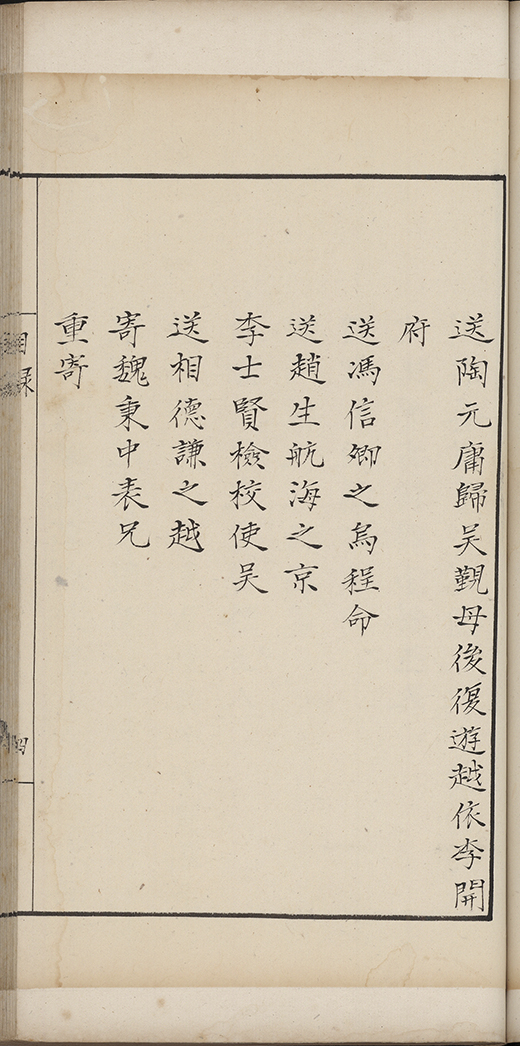 送陶元庸歸吳覲母後復遊越依李開
府
送馮信卿之烏程命
送趙生航海之京
李士賢檢校使吳
送相德謙之越
寄魏秉中表兄
重寄
目録
四